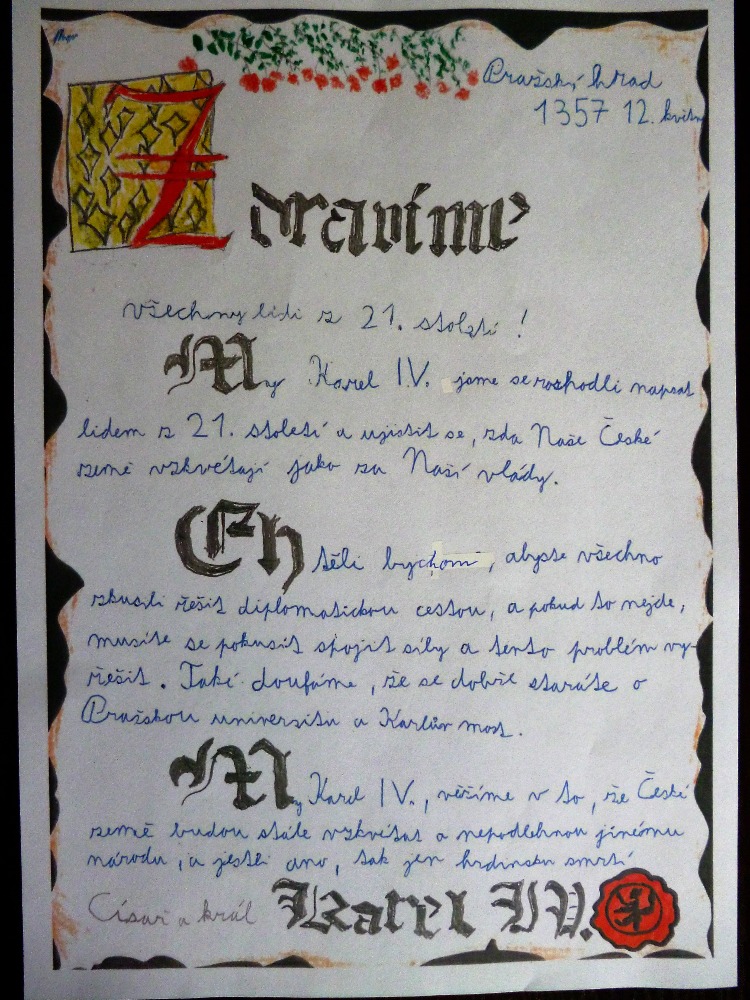 Pražský hrad
1357 12. květn
Zdravíme
všechny lidi z 21. století !
My Karel IV. jsme se rozhodli napsat
lidem z 21. století a ujistit se, zda Naše České
země vzkvétají jako za Naší vlády.
Chtěli bychom , abyste všechno
zkusili řešit diplomatickou cestou, a pokud to nejde,
musíte se pokusit spojit síly a tento problém vy-
řešit. Také doufáme, že se dobře staráte o
Pražskou universitu a Karlův most.
My Karel IV., věříme v to, že České
země budou stále vzkvétat a nepodlehnou jinému
národu, a jestli ano, tak jen hrdinskou smrtí
Císař a král Karel IV.